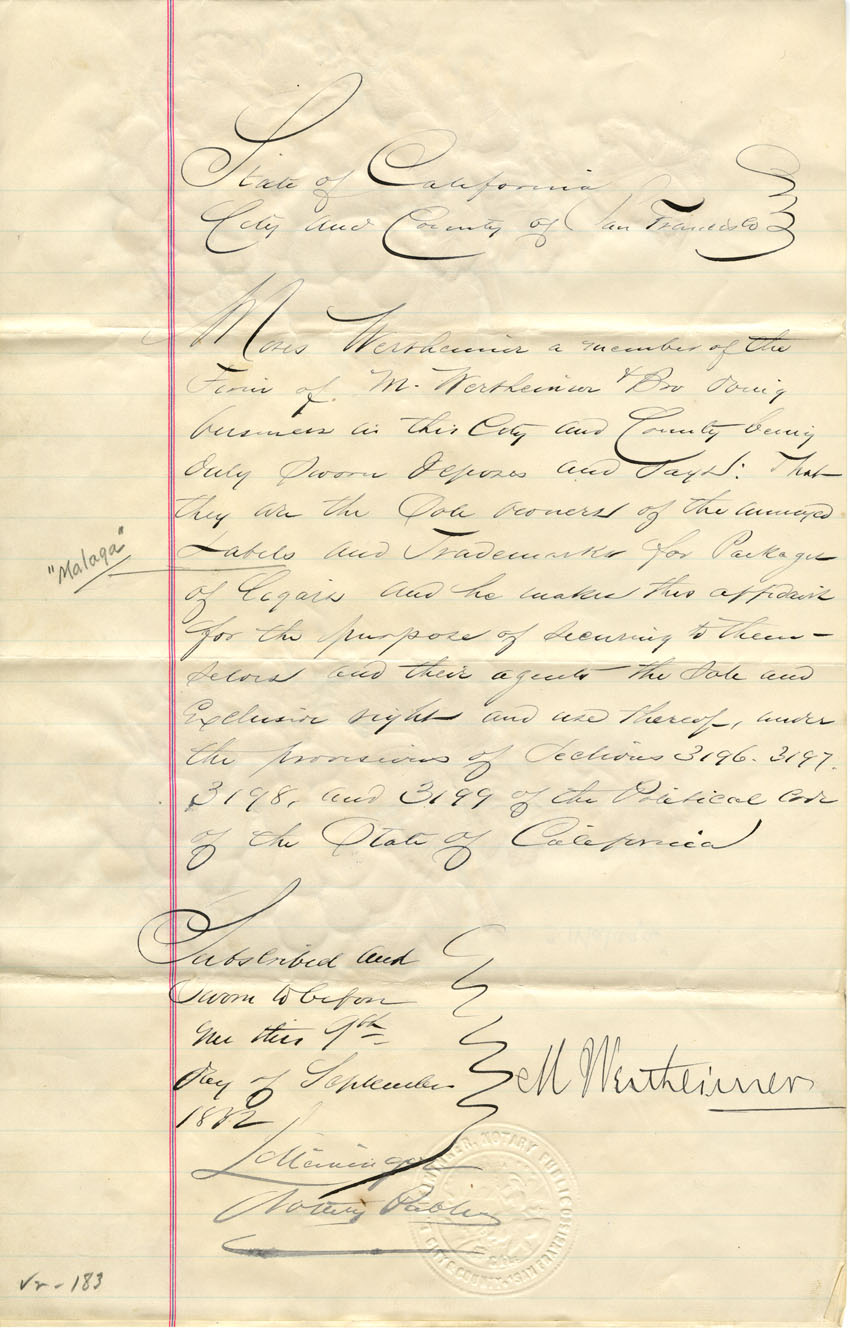 State of California
City and County of San Francisco
Moses Wertheimer a member of the
Firm of M. Wertheimer & Bro doing
business in this City and County being
duly Sworn deposes and Says: That
they are the Sole owners of the annexed
Labels and Trademarks for Packages
"Malaga"
of Cigars and he makes this affidavit
for the purpose of securing to them-
selves and their agents the Sole and
Exclusive right and use thereof, under
the provisions of Sections 3196. 3197.
3198. and 3199 of the Political Code
of the State of California
Subscribed and
Sworn to before
me this 9th
day of September
1882
M Wertheimer
Notary Public
NOTARY PUBLIC
CITY & COUNTY SAN FRANCISCO
183